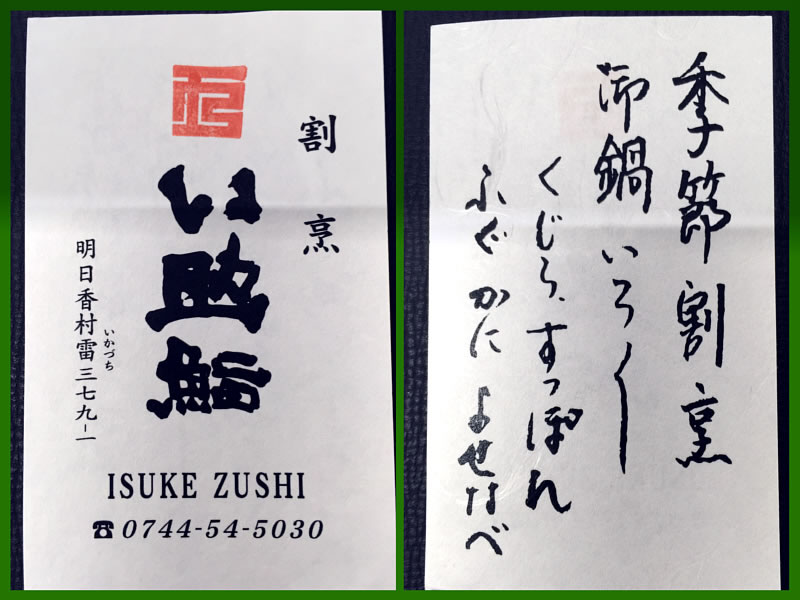 割烹
い助鮨
明日香村雷三七九-一
いかづち
ISUKE ZUSHI
☎0744-54-5030
季節割烹
御鍋いろ〱
くじら、すっぽん
ふぐ かに よせなべ